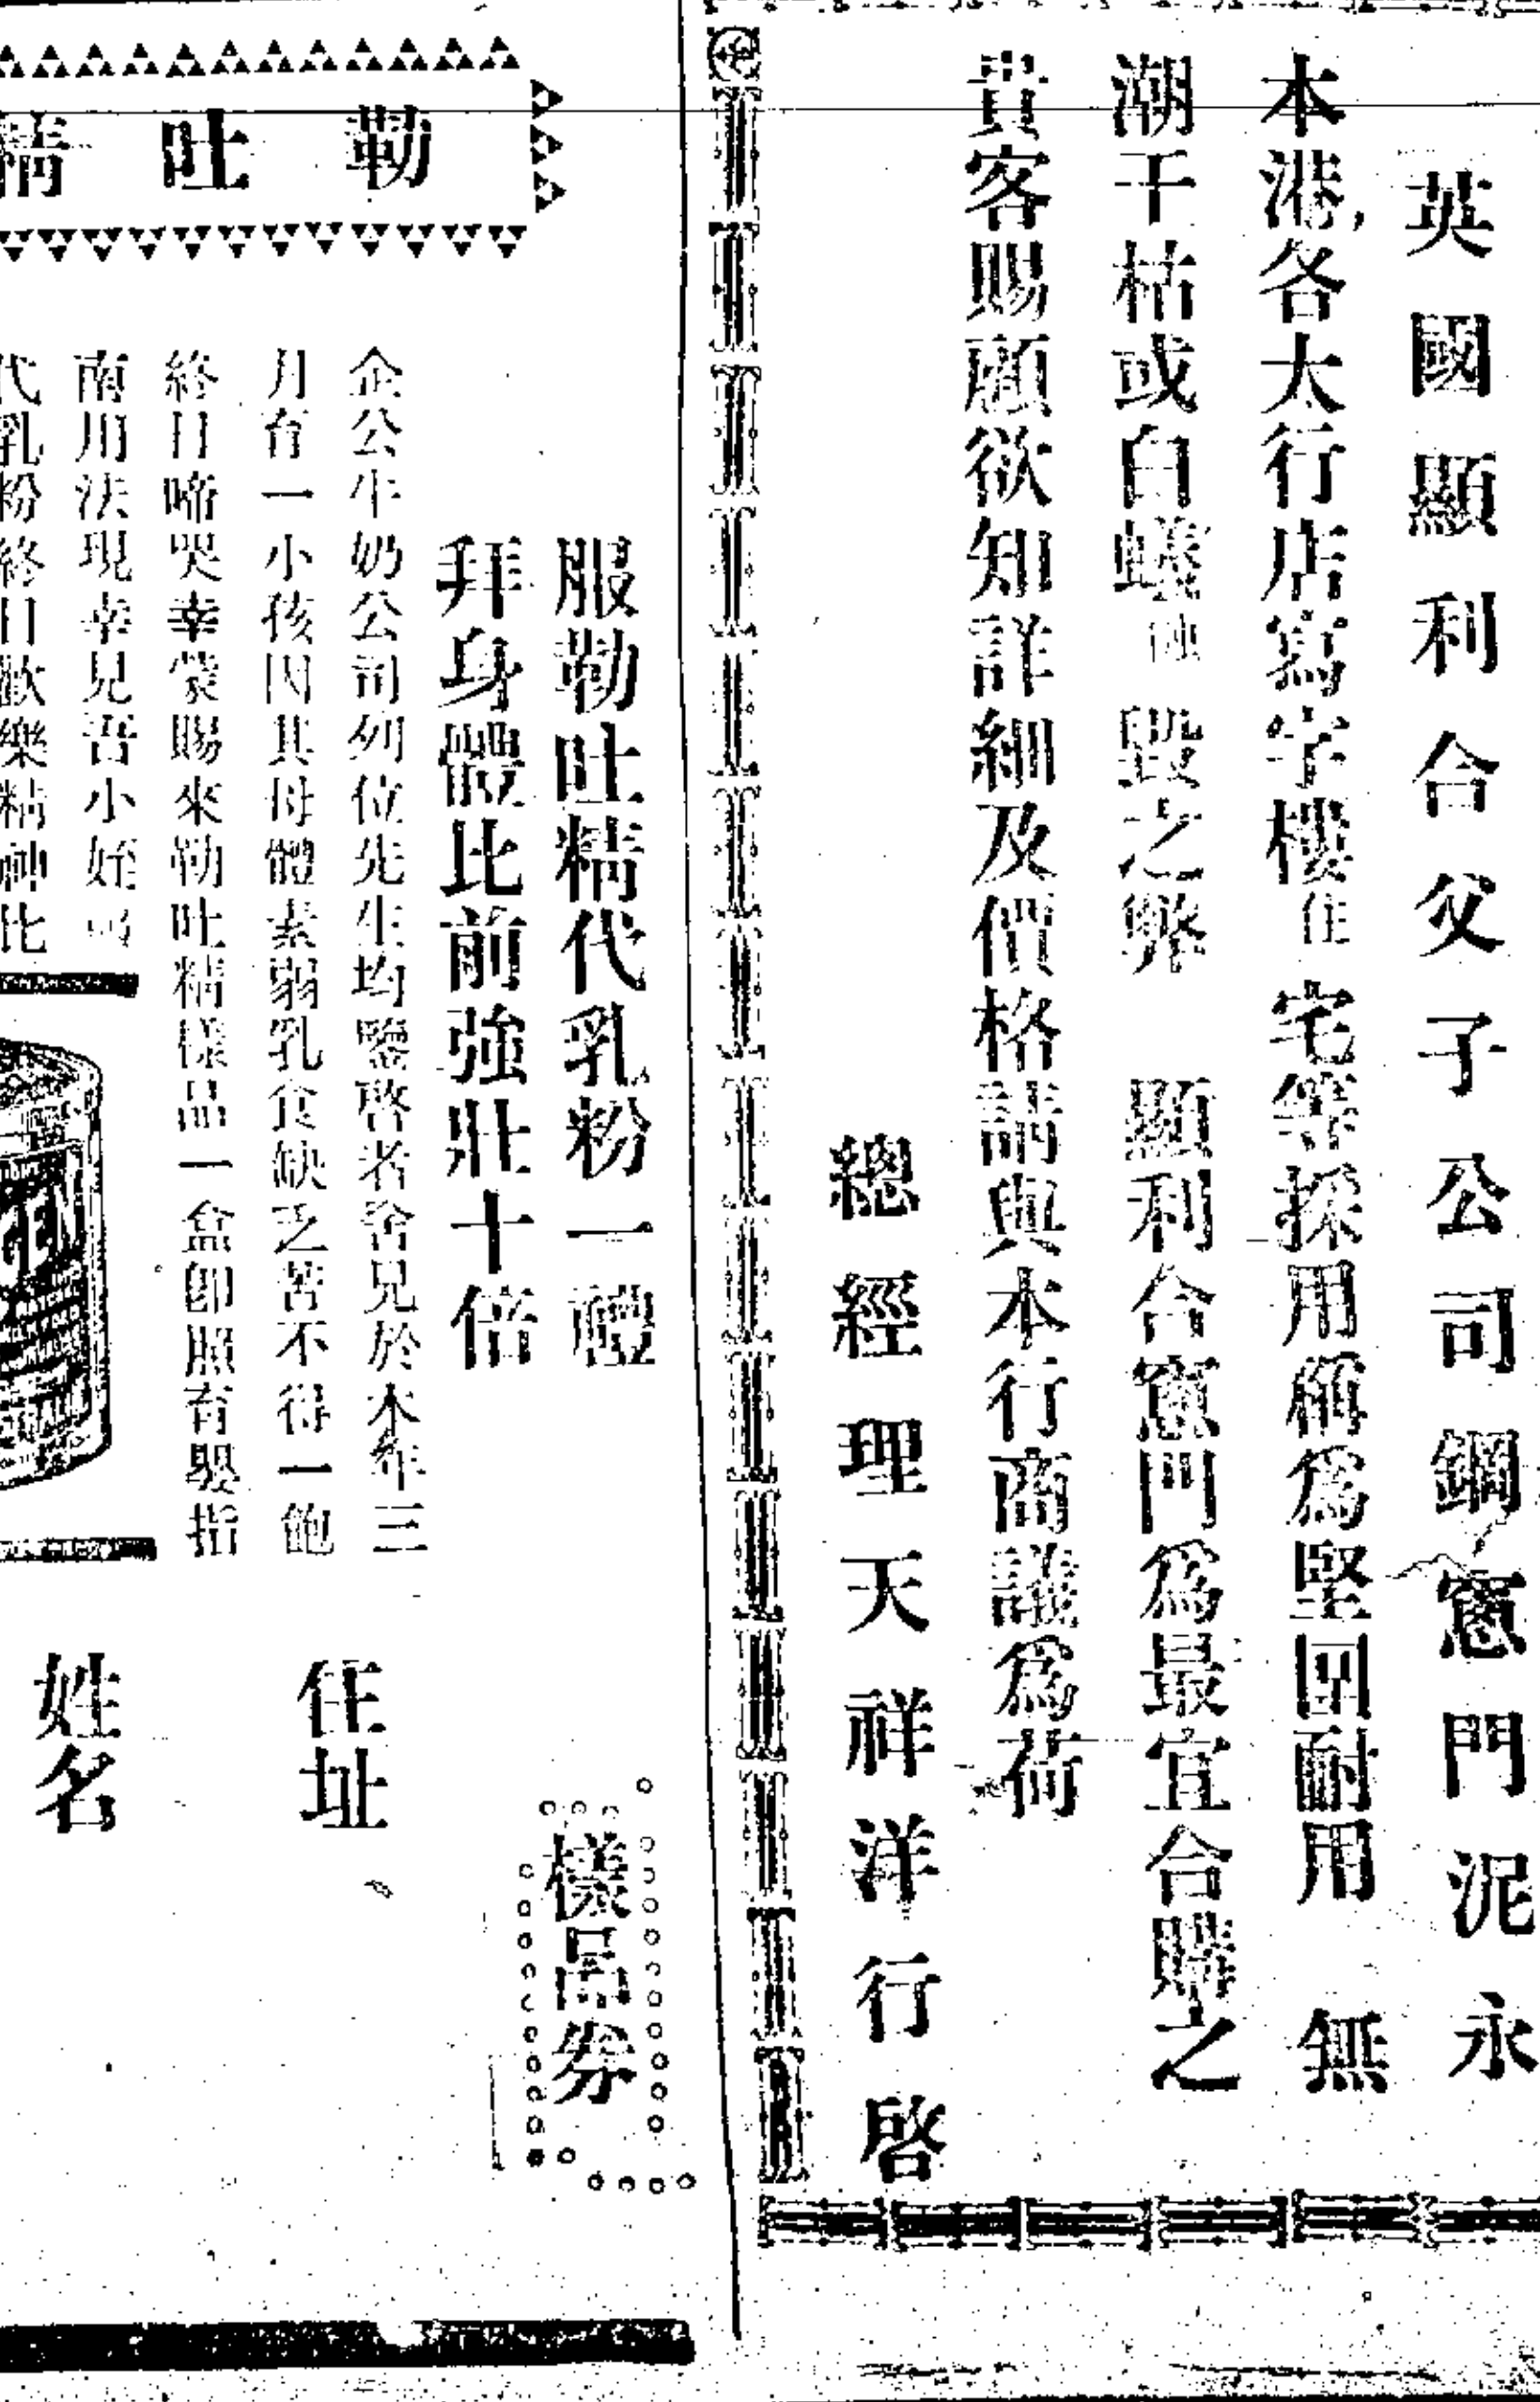 英國顯利合父子公司鋼窓門泥永
本港各大行店寫字樓住宅等採用稱為堅固耐用 無
潮干枯或白蟻蝕毀之弊 顯利合窓門為最宜合購之
貴客賜顧欲知詳細及價格請與本行商議為荷
總經理天祥洋行啓
勒吐精
服勒吐精代乳粉一禮
拜身體比前強壯十倍
企公牛奶公司列位先生均鑒啓者舍兄於本年三
月育一小孩因其母體素弱乳食缺乏苦不得一飽
終日啼哭幸蒙賜來勒吐精樣品一盒卽照育嬰指
南用法現幸見吾小姪
代乳粉終日歡樂精神比
樣品券
住址
姓名